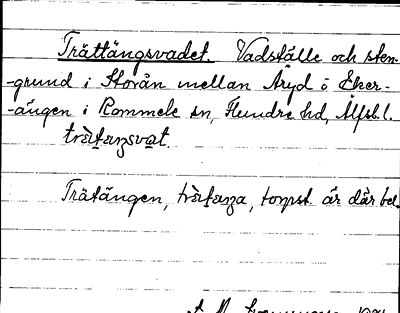 Trättängsvadet. Vadställe och sten-
-grund i Storån mellan Aryd o Eker-
-ängen i Rommele sn, Flundre hd, Älfsb. l.
Trätängen, torpst. är där bel.